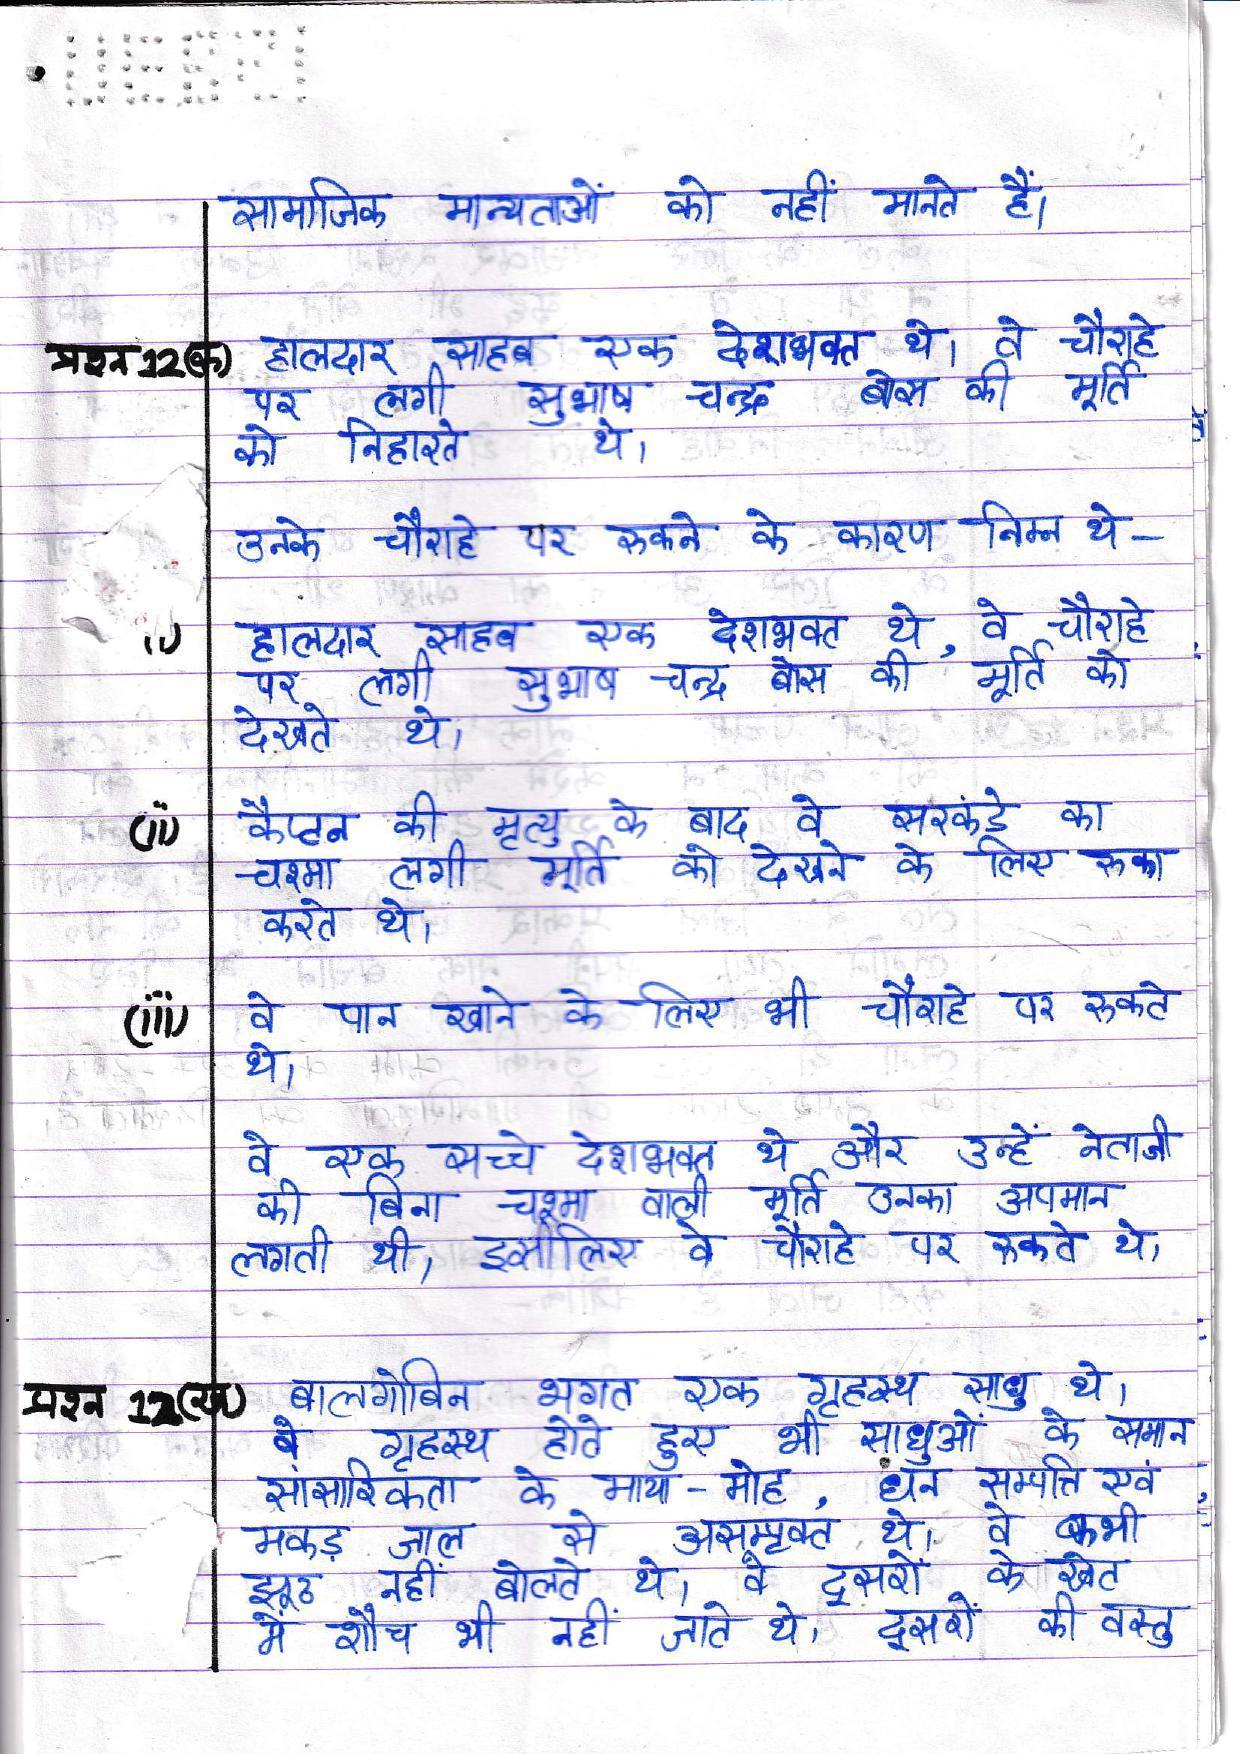 सामाजिक मान्यताओं को नहीं मानते हैं।
प्रश्न 12(क) हालदार साहब एक देशभक्त थे। वे चौराहे
पर लगी सुभाष चन्द्र बोस की मूर्ति
को निहारते थे।
उनके चौराहे पर रुकने के कारण निम्न थे –
i) हालदार साहब एक देशभक्त थे, वे चौराहे
पर लगी सुभाष चन्द्र बोस की मूर्ति को
देखते थे।
(ii) कैप्टन की मृत्यु के बाद वे सरकंडे का
चश्मा लगी मूर्ति को देखने के लिए रुका
करते थे।
(iii) वे पान खाने के लिए भी चौराहे पर रुकते
थे।
वे एक सच्चे देशभक्त थे और उन्हें नेताजी
की बिना चश्मा वाली मूर्ति उनका अपमान
लगती थी, इसीलिए वे चौराहे पर रुकते थे।
प्रश्न 12(ख) बालगोबिन भगत एक गृहस्थ साधु थे।
वे गृहस्थ होते हुए भी साधुओं के समान
सांसारिकता के माया-मोह, धन सम्पत्ति एवं
मकड़ जाल से असम्पृक्त थे। वे कभी
झूठ नहीं बोलते थे, वे दूसरों के खेत
में शौच भी नहीं जाते थे। दूसरों की वस्तु